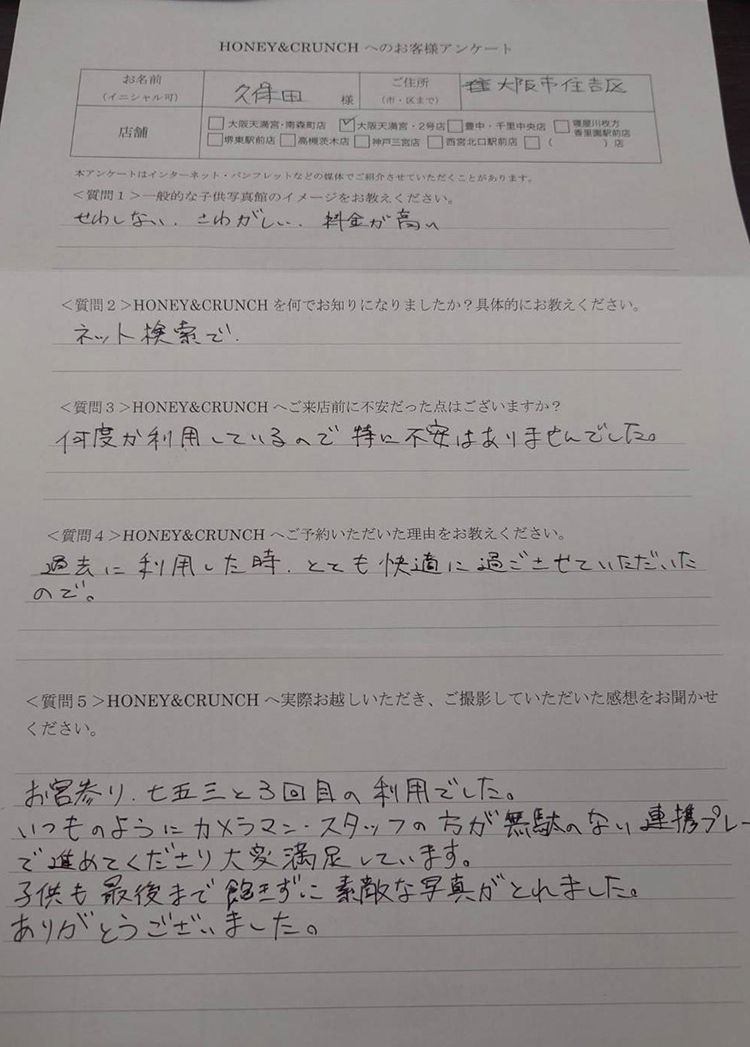 HONEY&CRUNCH へのお客様アンケート
お名前
(イニシャル可)
久保田 様
ご住所
(市・区まで)
大阪市住吉区
店舗
□ 大阪天満宮・南森町店 ☑ 大阪天満宮・2号店 □ 豊中・千里中央店 □ 寝屋川枚方香里園駅前店
□ 堺東駅前店 □ 高槻茨木店 □ 神戸三宮店 □ 西宮北口駅前店 □ ( )店
本アンケートはインターネット・パンフレットなどの媒体でご紹介させていただくことがあります。
<質問1>一般的な子供写真館のイメージをお教えください。
せわしない、さわがしい、料金が高い
<質問2>HONEY&CRUNCH を何でお知りになりましたか?具体的にお教えください。
ネット検索で.
<質問3>HONEY&CRUNCH へご来店前に不安だった点はございますか?
何度か利用しているので特に不安はありませんでした。
<質問4>HONEY&CRUNCH へご予約いただいた理由をお教えください。
過去に利用した時、とても快適に過ごさせていただいた
ので。
<質問5>HONEY&CRUNCH へ実際お越しいただき、ご撮影していただいた感想をお聞かせ
ください。
お宮参り、七五三と3回目の利用でした。
いつものようにカメラマン・スタッフの方が無駄のない連携プレー
で進めてくださり大変満足しています。
子供も最後まで飽きずに素敵な写真がとれました。
ありがとうございました。